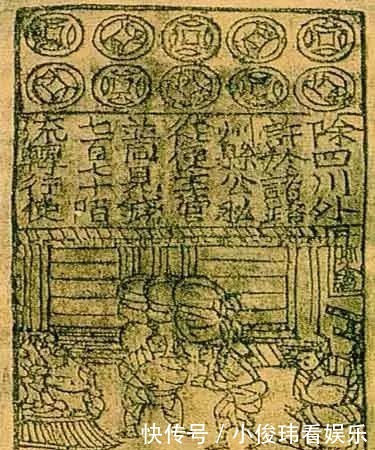 除四川外
許於諸路
州縣公私
從便主管
並同見錢
七百七十陌
流轉行使
快传号 / 小俊玮看娱乐